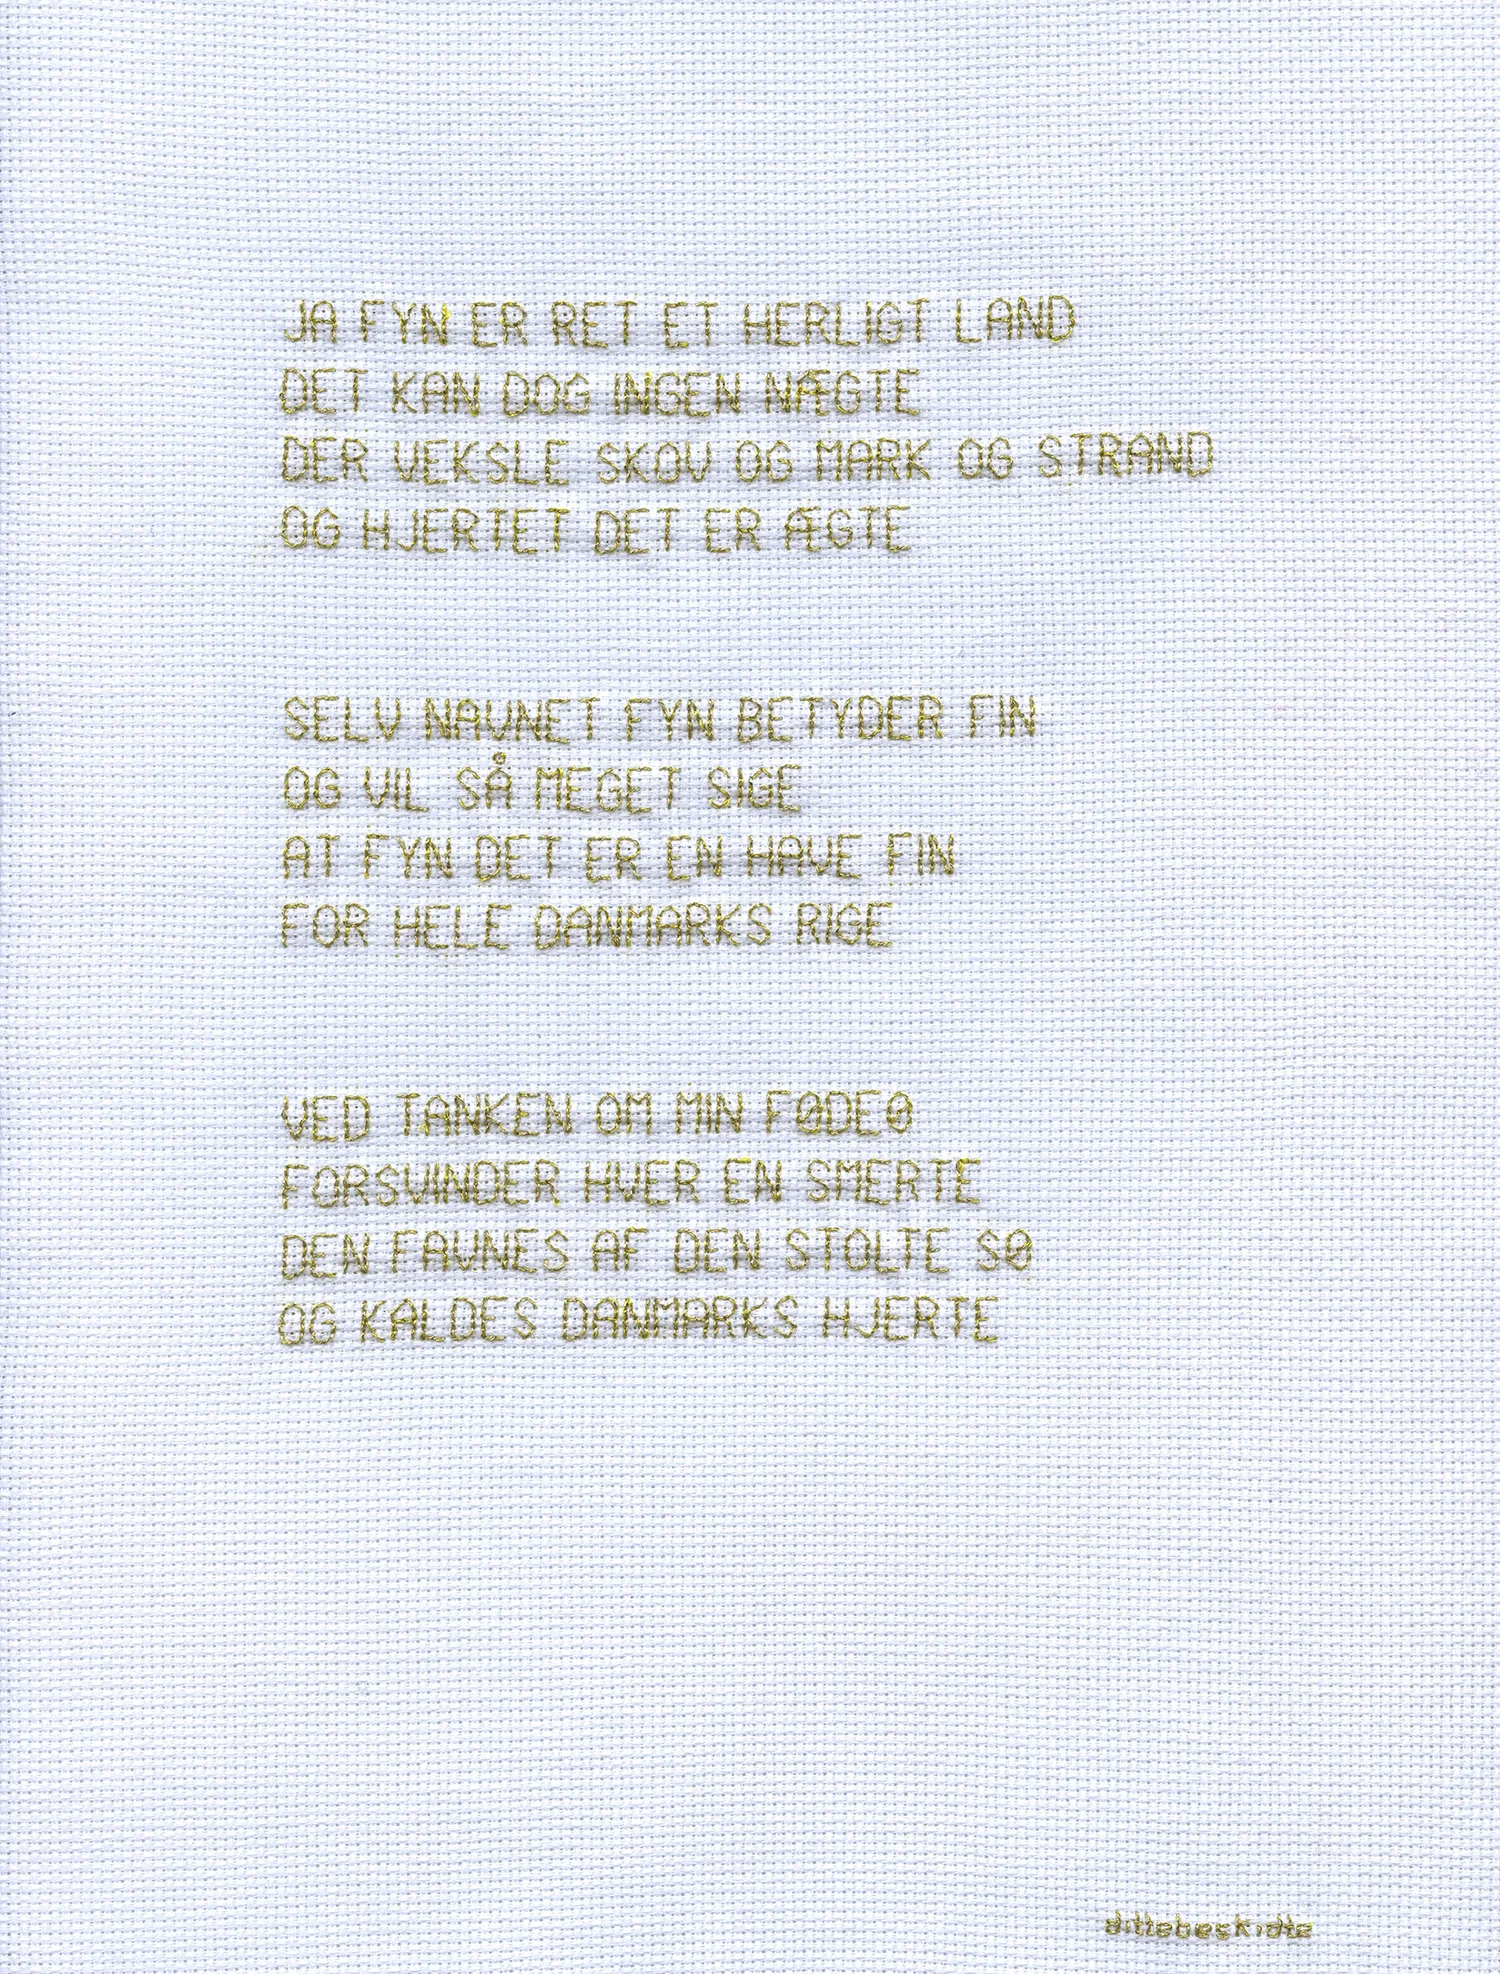 JA FYN ER RET ET HERLIGT LAND
DET KAN DOG INGEN NÆGTE
DER VEKSLE SKOV OG MARK OG STRAND
OG HJERTET DET ER ÆGTE
SELV NAVNET FYN BETYDER FIN
OG VIL SÅ MEGET SIGE
AT FYN DET ER EN HAVE FIN
FOR HELE DANMARKS RIGE
VED TANKEN OM MIN FØDEØ
FORSVINDER HVER EN SMERTE
DEN FAVNES AF DEN STOLTE SØ
OG KALDES DANMARKS HJERTE
dittebeskidte